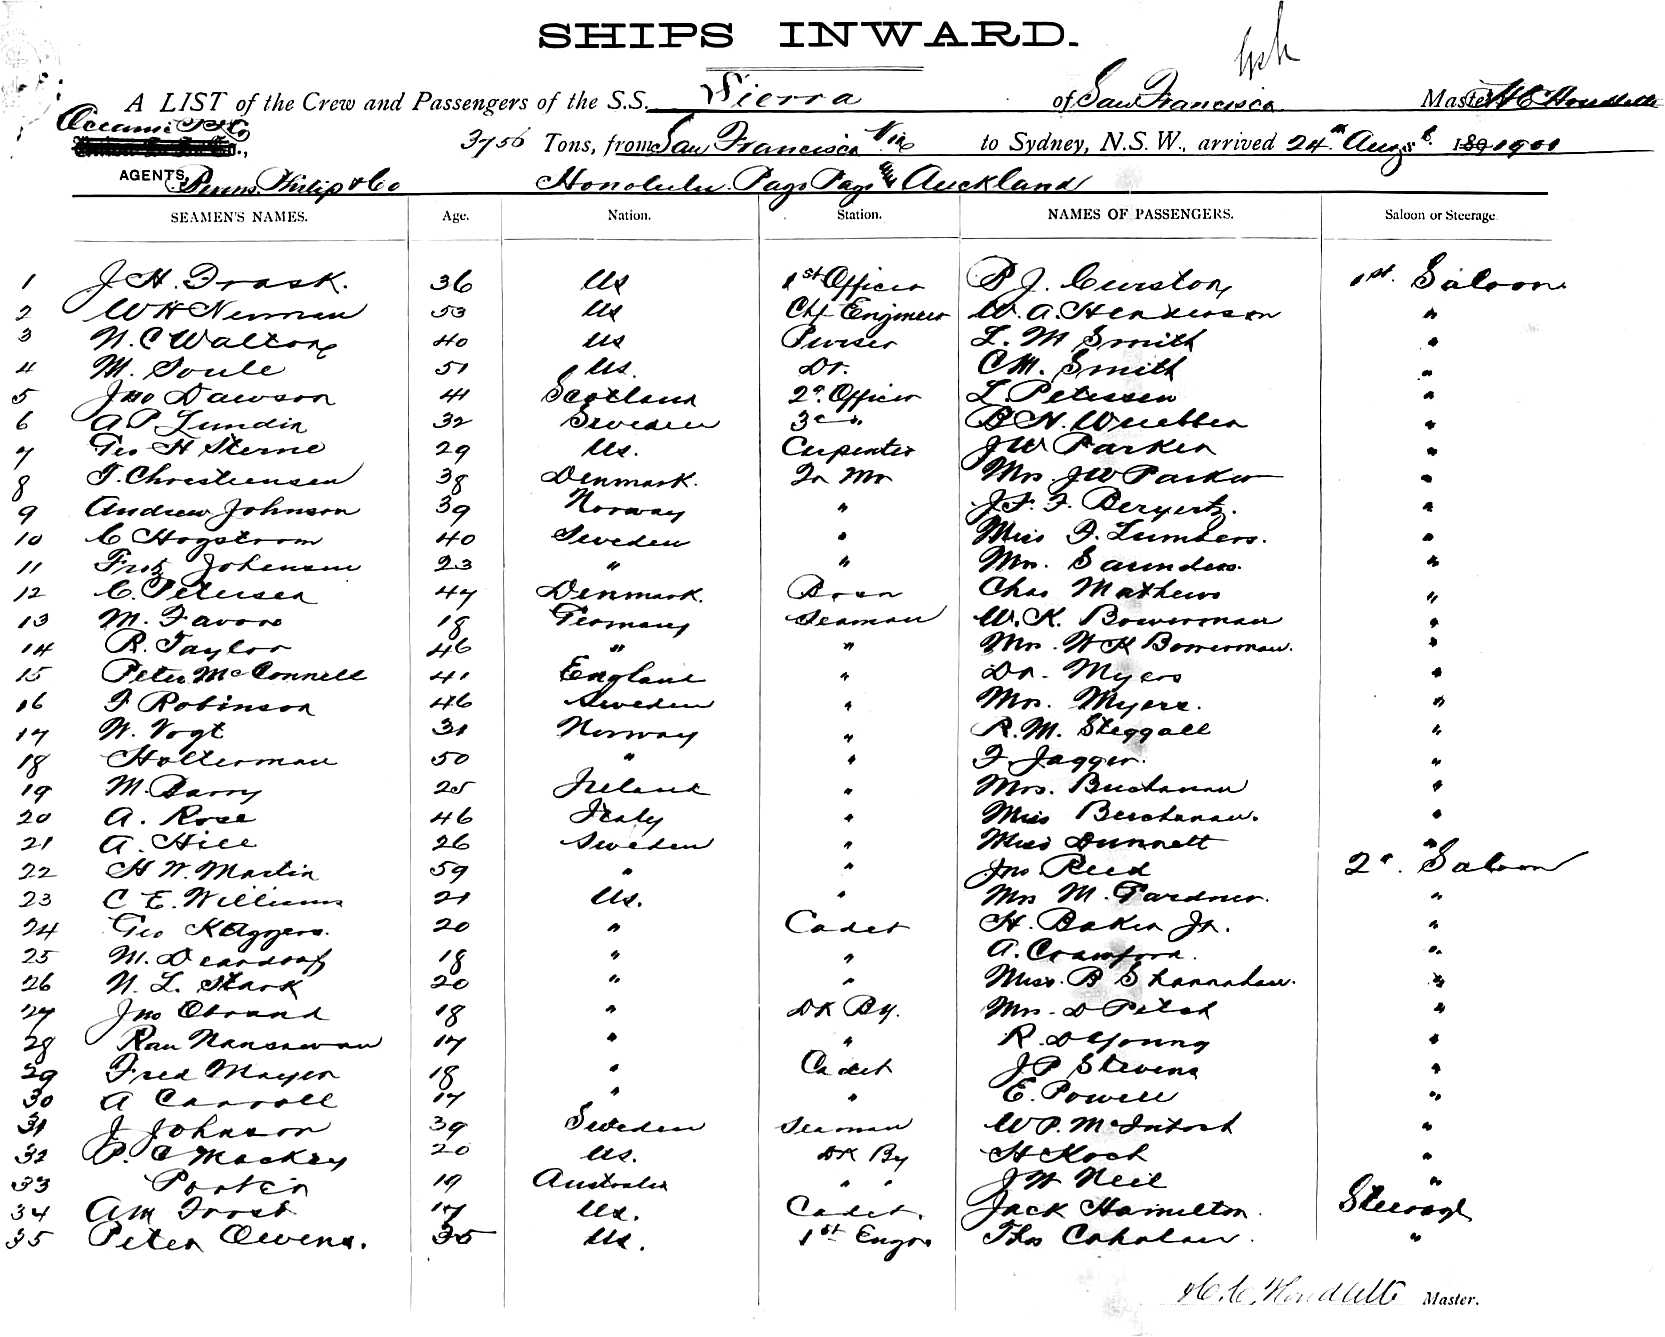 SHIPS INWARD.
A LIST of the Crew and Passengers of the S.S. Sierra of San Francisco Master H C Houdlette
Oceanic S S Co
3756 Tons, from San Francisco Via to Sydney, N.S.W., arrived 24th Augst 189 1901
AGENTS Burns Philip & Co Honolulu Pago Pago & Auckland
SEAMEN'S NAMES. Age. Nation. Station. NAMES OF PASSENGERS. Saloon or Steerage
1 J H Trask. 36 US 1st Officer P J. Curston 1st. Saloon
2 W H Neuman 53 US Chf Engineer W. A. Henderson "
3 N. C Walton 40 US Purser L. M Smith "
4 M. Soule 51 US. Dr. C M. Smith "
5 Jno Dawson 41 Scotland 2d Officer L Petersen "
6 A P Lundin 32 Sweden 3d " B H. Wuebben "
7 Geo H Sterne 29 US. Carpenter J W Parker "
8 T. Christiensen 38 Denmark. Qr Mr Mrs J W Parker "
9 Andrew Johnson 39 Norway " J. F. F. Beryertz. "
10 C Hogstrom 40 Sweden " Miss F. Lumbers. "
11 Fritz Johensen 23 " " Mrs. Saunders. "
12 C. Petersen 47 Denmark. Bosn Chas Mathews "
13 M. Favore 18 Germany Seaman W. K. Bowerman "
14 R. Taylor 46 " " Mrs. W K Bowerman. "
15 Peter McConnell 41 England " Dr. Myers "
16 F Robinson 46 Sweden " Mrs. Myers. "
17 W. Vogt 31 Norway " R. M. Steggall "
18 Holterman 50 " " F Jagger. "
19 M. Barry 25 Ireland " Mrs. Buchanan "
20 A. Rose 46 Italy " Miss Buchanan. "
21 A. Hill 26 Sweden " Miss Dunnett "
22 H W. Martin 59 " " Jno Reed 2d. Saloon
23 C E. Williams 21 US. " Mrs M. Gardner. "
24 Geo Kaggers. 20 " Cadet H. Baker Jr. "
25 M. Deardorf 18 " " A. Crawford. "
26 N. L. Stark 20 " " Miss. B Shannahan. "
27 Jno Obrand 18 " DK By. Mrs. D Petsch "
28 Rau Nansawan 17 " " R. D Young "
29 Fred Mayer 18 " Cadet J P Stevens "
30 A Carroll 17 " " E. Powell "
31 J Johnson 39 Sweden Seaman W P. McIntosh "
32 P. C Mackey 20 US. DK By H Koch "
33 Porter 19 Australia " " J W Neil "
34 A M Frost 17 US. Cadet. Jack Hamilton. Steerage
35 Peter Owens. 35 US. 1st Engnr Thos Caholan. "
H. C. Houdlette Master.